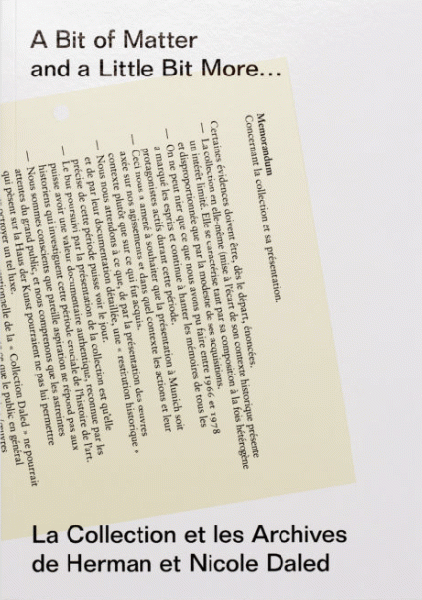 A Bit of Matter
and a Little Bit More…
Memorandum
Concernant la collection et sa présentation.
Certaines évidences doivent être, dès le départ, énoncées.
— La collection en elle-même (mise à l'écart de son contexte historique présente
un intérêt limité. Elle se caractérise tant par sa composition à la fois hétérogène
et disproportionnée que par la modestie de ses acquisitions.
— On ne peut nier que ce que nous avons pu faire entre 1966 et 1978
a marqué les esprits et continue à hanter les mémoires de tous les
protagonistes actifs durant cette période.
— Ceci nous a amené à souhaiter que la présentation à Munich soit
axée sur nos agissements et dans quel contexte les actions et leur
contexte plutôt que sur ce qui fut acquis.
— Nous nous attendons à ce que, de par la présentation des œuvres
et de par leur documentation détaillée, une « restitution historique »
précise de cette période puisse voir le jour.
— Le but poursuivi par la présentation de la collection est qu'elle
puisse avoir une valeur documentaire authentique, reconnue par les
historiens qui investiguent cette période cruciale de l'histoire de l'art.
— Nous sommes conscients que pareille aspiration ne répond pas aux
attentes du grand public, et nous comprenons que les astreintes
qui pèsent sur la Haus der Kunst pourraient ne pas lui permettre
un tel luxe.
de la « Collection Daled » ne pourrait
que le public en général
La Collection et les Archives
de Herman et Nicole Daled